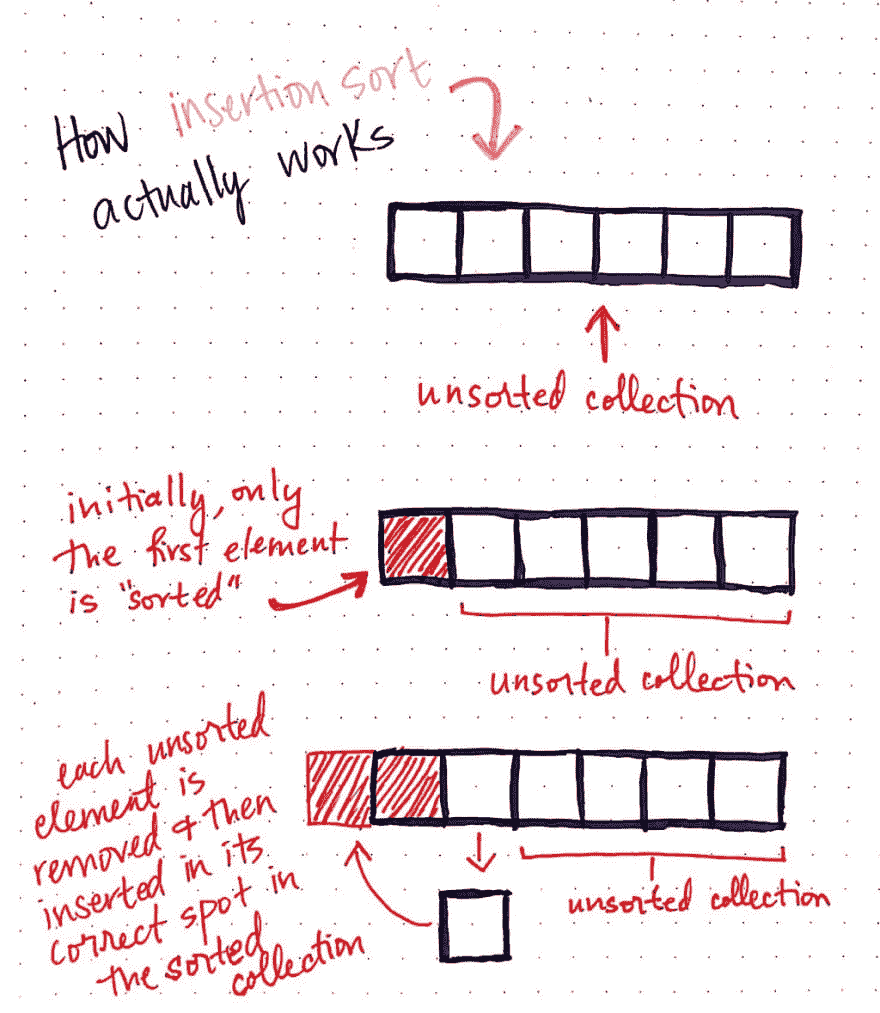 How insertion sort
actually works
unsorted collection
initially, only
the first element
is "sorted"
unsorted collection
each unsorted
element is
removed & then
inserted in its
correct spot in
the sorted
collection
unsorted collection